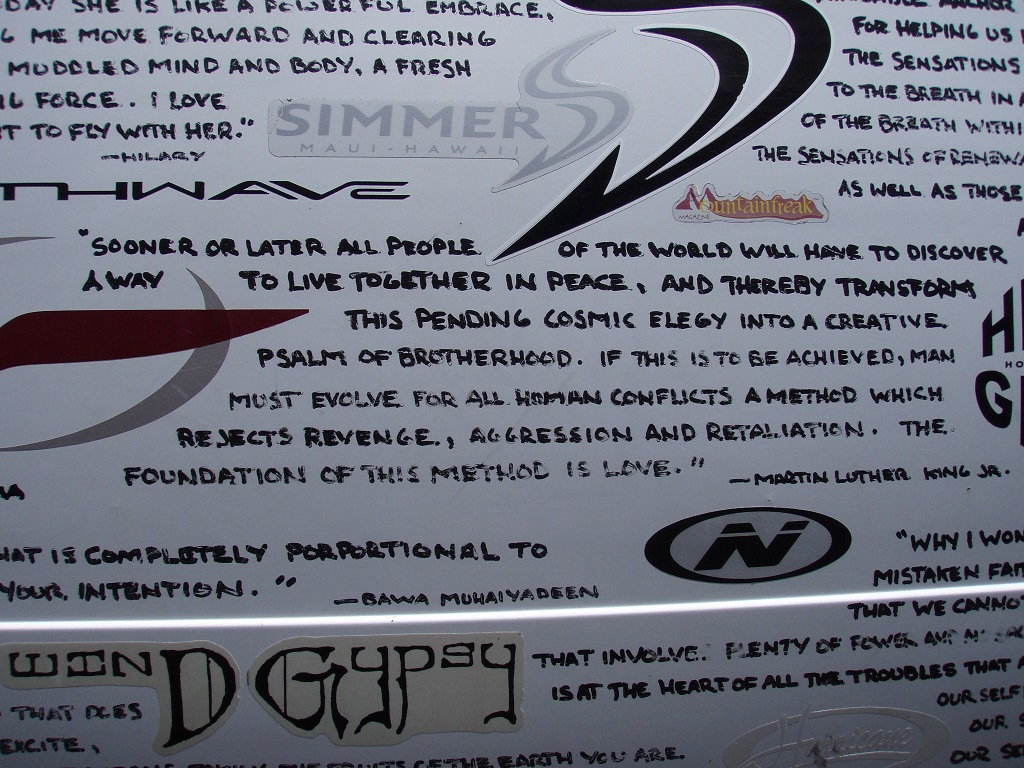 DAY SHE IS LIKE A POWERFUL EMBRACE,
ME MOVE FORWARD AND CLEARING
MUDDLED MIND AND BODY, A FRESH
FORCE.. I LOVE
TO FLY WITH HER."
—HILARY
SIMMER
MAUI-HAWAII
FOR HELPING US
THE SENSATIONS
TO THE BREATH IN
OF THE BREATH WITHI
THE SENSATIONS OF RENEWA
AS WELL AS THOSE
THWAVE
Mountainfreak
MAGAZINE
"SOONER OR LATER ALL PEOPLE OF THE WORLD WILL HAVE TO DISCOVER
A WAY TO LIVE TOGETHER IN PEACE, AND THEREBY TRANSFORM
THIS PENDING COSMIC ELEGY INTO A CREATIVE
PSALM OF BROTHERHOOD. IF THIS IS TO BE ACHIEVED, MAN
MUST EVOLVE FOR ALL HUMAN CONFLICTS A METHOD WHICH
REJECTS REVENGE, AGGRESSION AND RETALIATION. THE
FOUNDATION OF THIS METHOD IS LOVE."
—MARTIN LUTHER KING JR.
H
HO
G
HAT IS COMPLETELY PORPORTIONAL TO
YOUR INTENTION."
—BAWA MUHAIYADEEN
N
"WHY I WON
MISTAKEN FAI
THAT WE CANNO
THAT INVOLVE. PLENTY OF POWER
IS AT THE HEART OF ALL THE TROUBLES THAT
OUR SELF
OUR
OUR SE
WIND GYPSY
THAT DOES
EXCITE,
THE FRUITS OF THE EARTH YOU ARE.
Hurricane